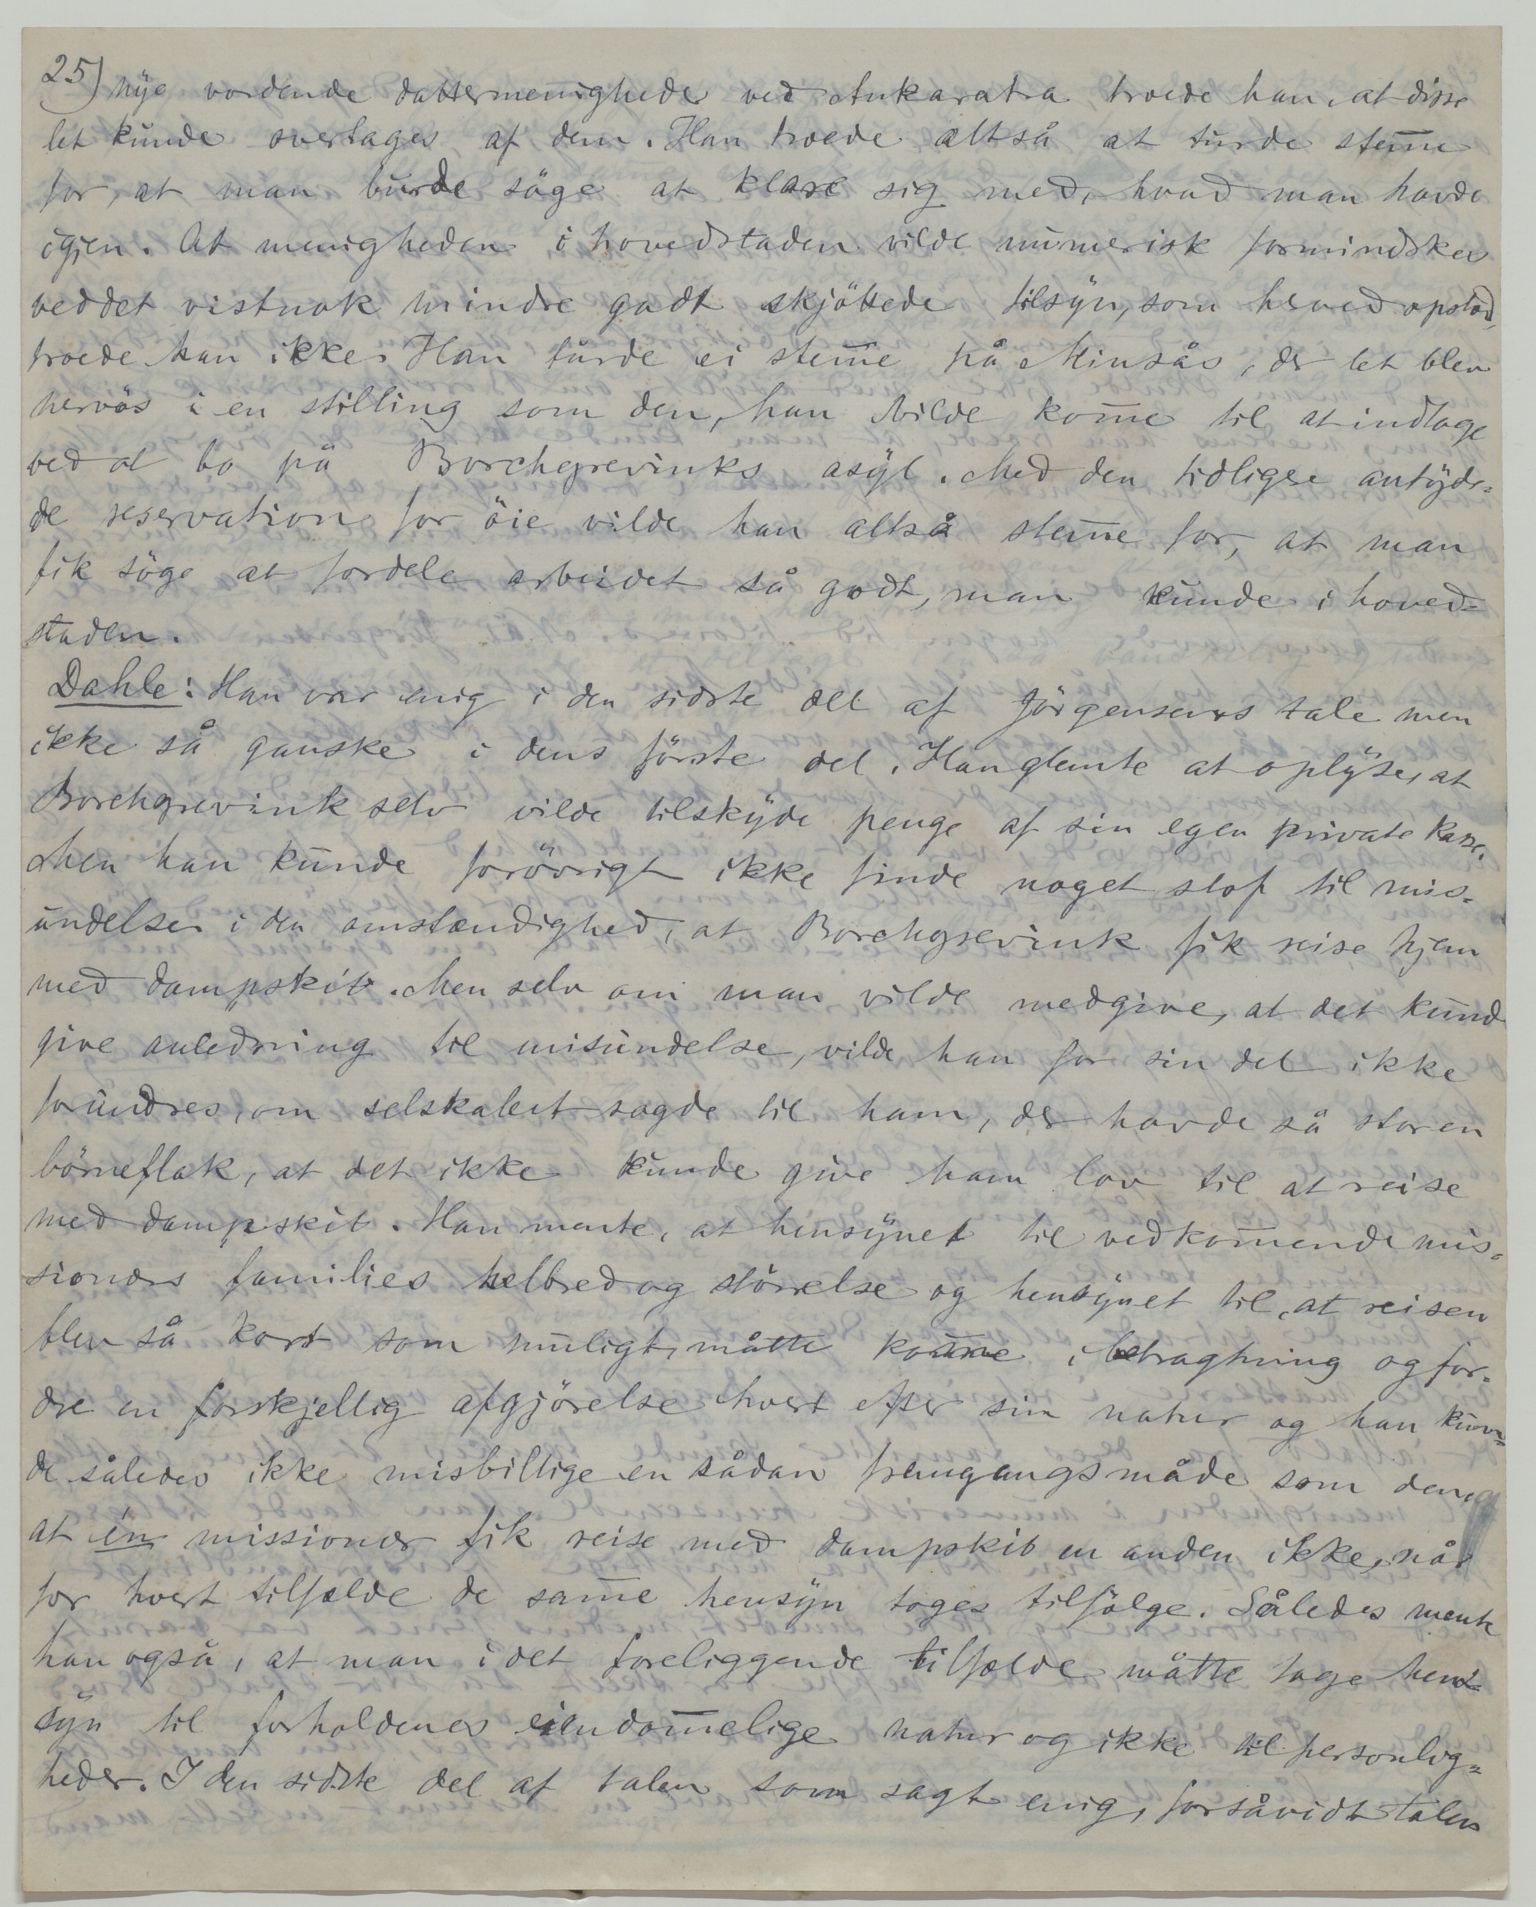 25) nye vordende dattermenigheder ved Ankaratra troede han, at disse
let kunde overtages af dem. Han troede altså at turde stem̄e
for, at man burde söge at klare sig med, hvad man havde
igjen. At menigheden i hovedstaden vilde numerisk formindskes
ved det vistnok mindre godt skjöttede tilsyn, som herved opstod,
troede han ikke. Han turde ei stem̄e på Minsås, der let blev
nervös i en stilling som den, han vilde kom̄e til at indtage
ved at bo på Borchgrevinks asyl. Med den tidligere antyde-
de reservation for öie vilde han altså stem̄e for, at man
fik söge at fordele arbeidet så godt, man kunde i hoved-
staden.
Dahle: Han var enig i den sidste del af Jörgensens tale men
ikke så ganske i dens förste del. Han glemte at oplyse, at
Borchgrevink selv vilde tilskyde penge af sin egen private kasse.
Men han kunde forövrigt ikke finde noget stof til mis-
undelse i den omstændighed, at Borchgrevink fik reise hjem
med dampskib. Men selv om man vilde medgive, at det kunde
give anledning til misundelse, vilde han for sin del ikke
forundres, om selskabet sagde til ham, der havde så stor en
börneflok, at det ikke kunde give ham lov til at reise
med dampskib. Han mente, at hensynet til vedkom̄ende mis-
sionærs families helbred og störrelse og hensynet til, at reisen
blev så kort som muligt, måtte kom̄e i betragtning og for-
dre en forskjellig afgjörelse hvert efter sin natur og han kun-
de således ikke misbillige en sådan fremgangsmåde som den,
at én missionær fik reise med dampskib en anden ikke, når
for hvert tilfælde de sam̄e hensyn toges tilfölge. Således mente
han også, at man i det foreliggende tilfælde måtte tage hen-
syn til forholdenes eiendom̄elige natur og ikke til personlig-
heder. I den sidste del af talen som sagt enig, forsåvidt talen